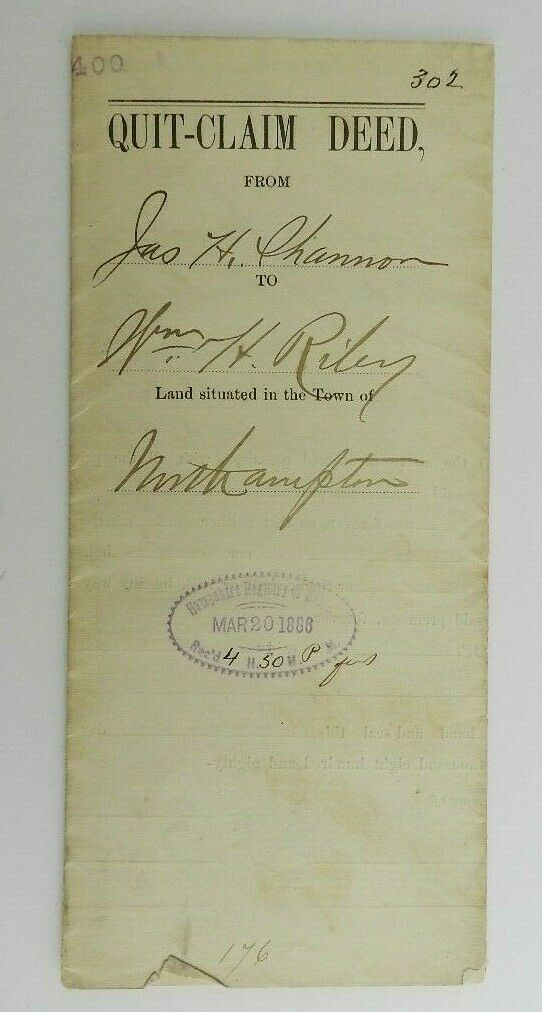 400
302
QUIT-CLAIM DEED,
FROM
Jas H. Shannon
TO
Wm H. Riley
Land situated in the Town of
Northampton
Hampshire Registry of
MAR 20 1886
Rec'd 4 H. 30 M. P M.
176